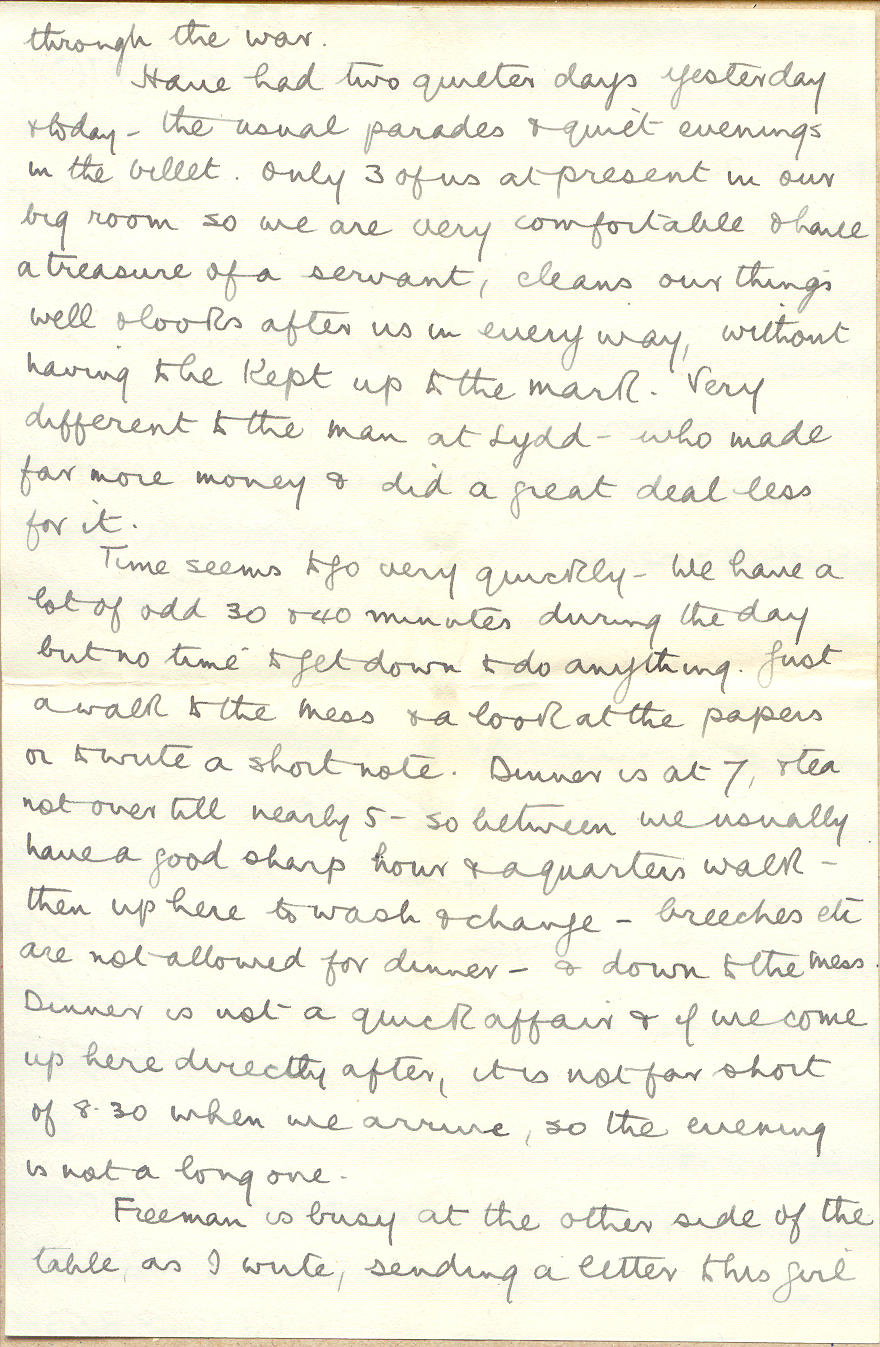 through the war.
Have had two quieter days yesterday
& today - the usual parades & quiet evenings
in the billet. Only 3 of us at present in our
big room so we are very comfortable & have
a treasure of a servant, cleans our things
well & looks after us in every way, without
having to be kept up to the mark. Very
different to the man at Lydd - who made
far more money & did a great deal less
for it.
Time seems to go very quickly - we have a
lot of odd 30 & 40 minutes during the day
but no time to get down to do anything. Just
a walk to the mess & a look at the papers
or to write a short note. Dinner is at 7, & tea
not over till nearly 5 - so between we usually
have a good sharp hour & a quarters walk -
then up here to wash & change - breeches etc
are not allowed for dinner - & down to the mess.
Dinner is not a quick affair & if we come
up here directly after, it is not far short
of 8.30 when we arrive, so the evening
is not a long one.
Freeman is busy at the other side of the
table, as I write, sending a letter to his girl